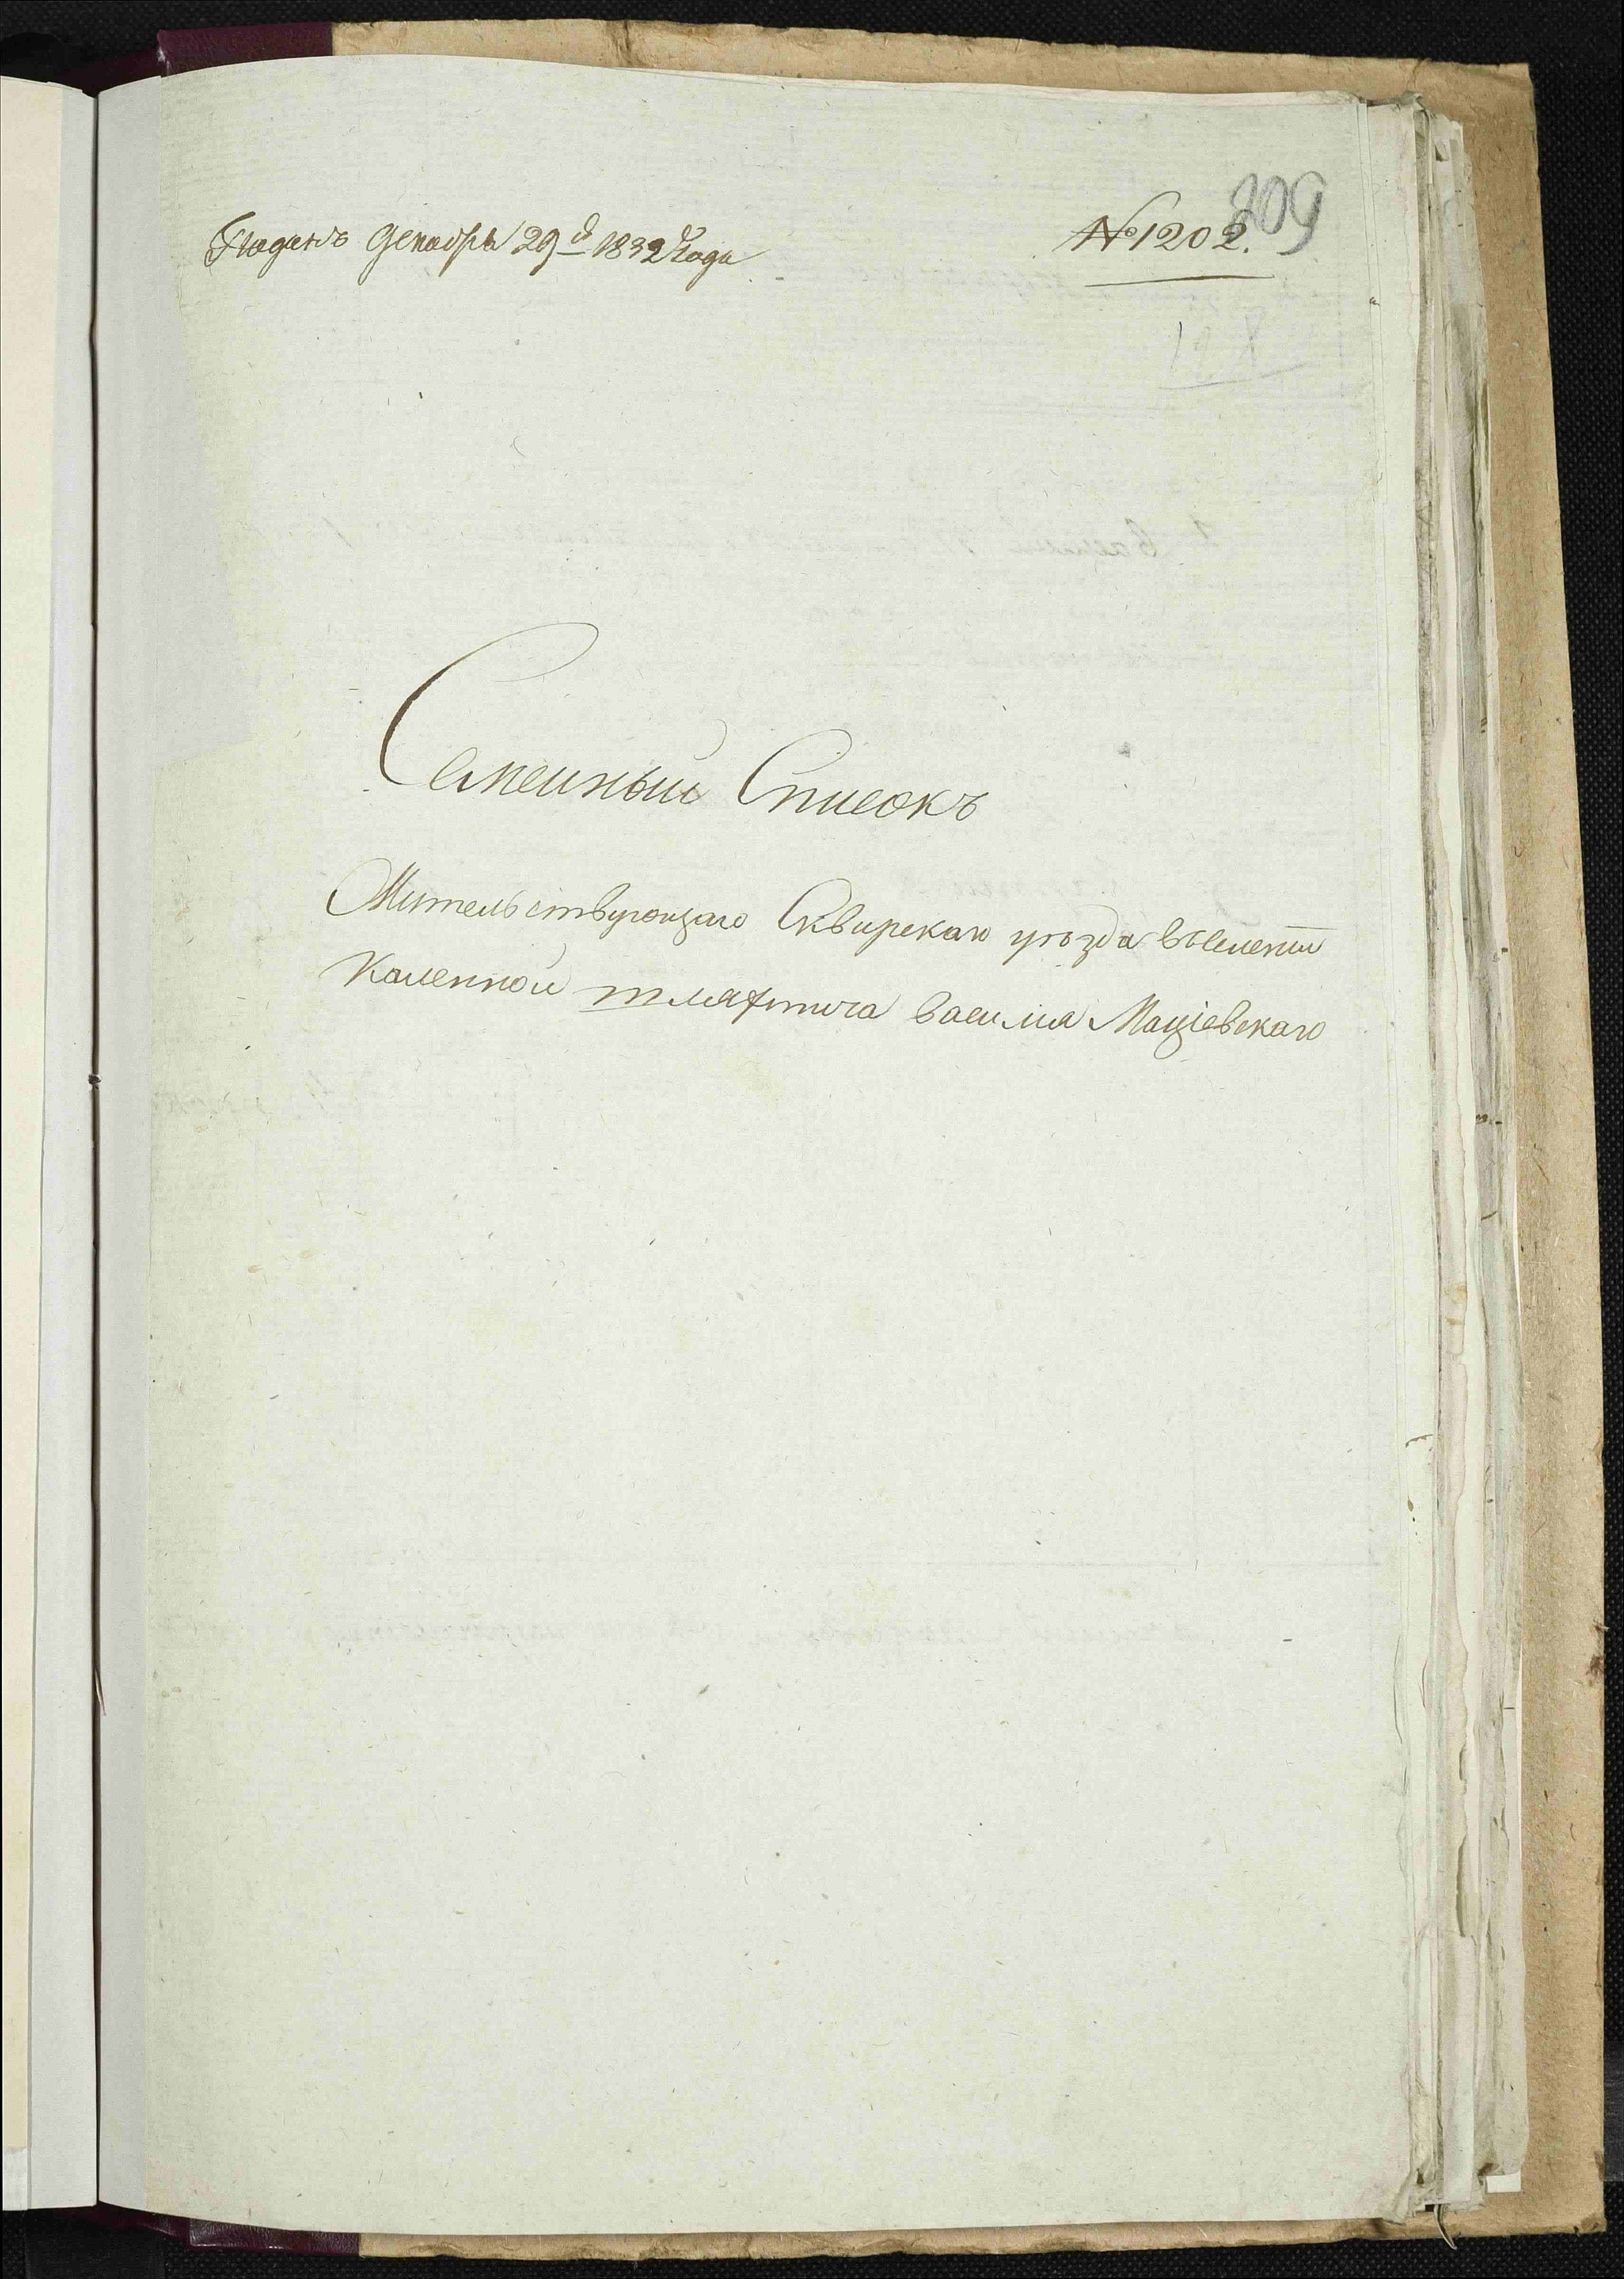 Поданъ Декабря 29го 1832 Года
№ 1202.
209
Семеиный Списокъ
Жительствующаго Сквирскаго уѣзда въселении
Каленной шляхтича Василия Маціевскаго